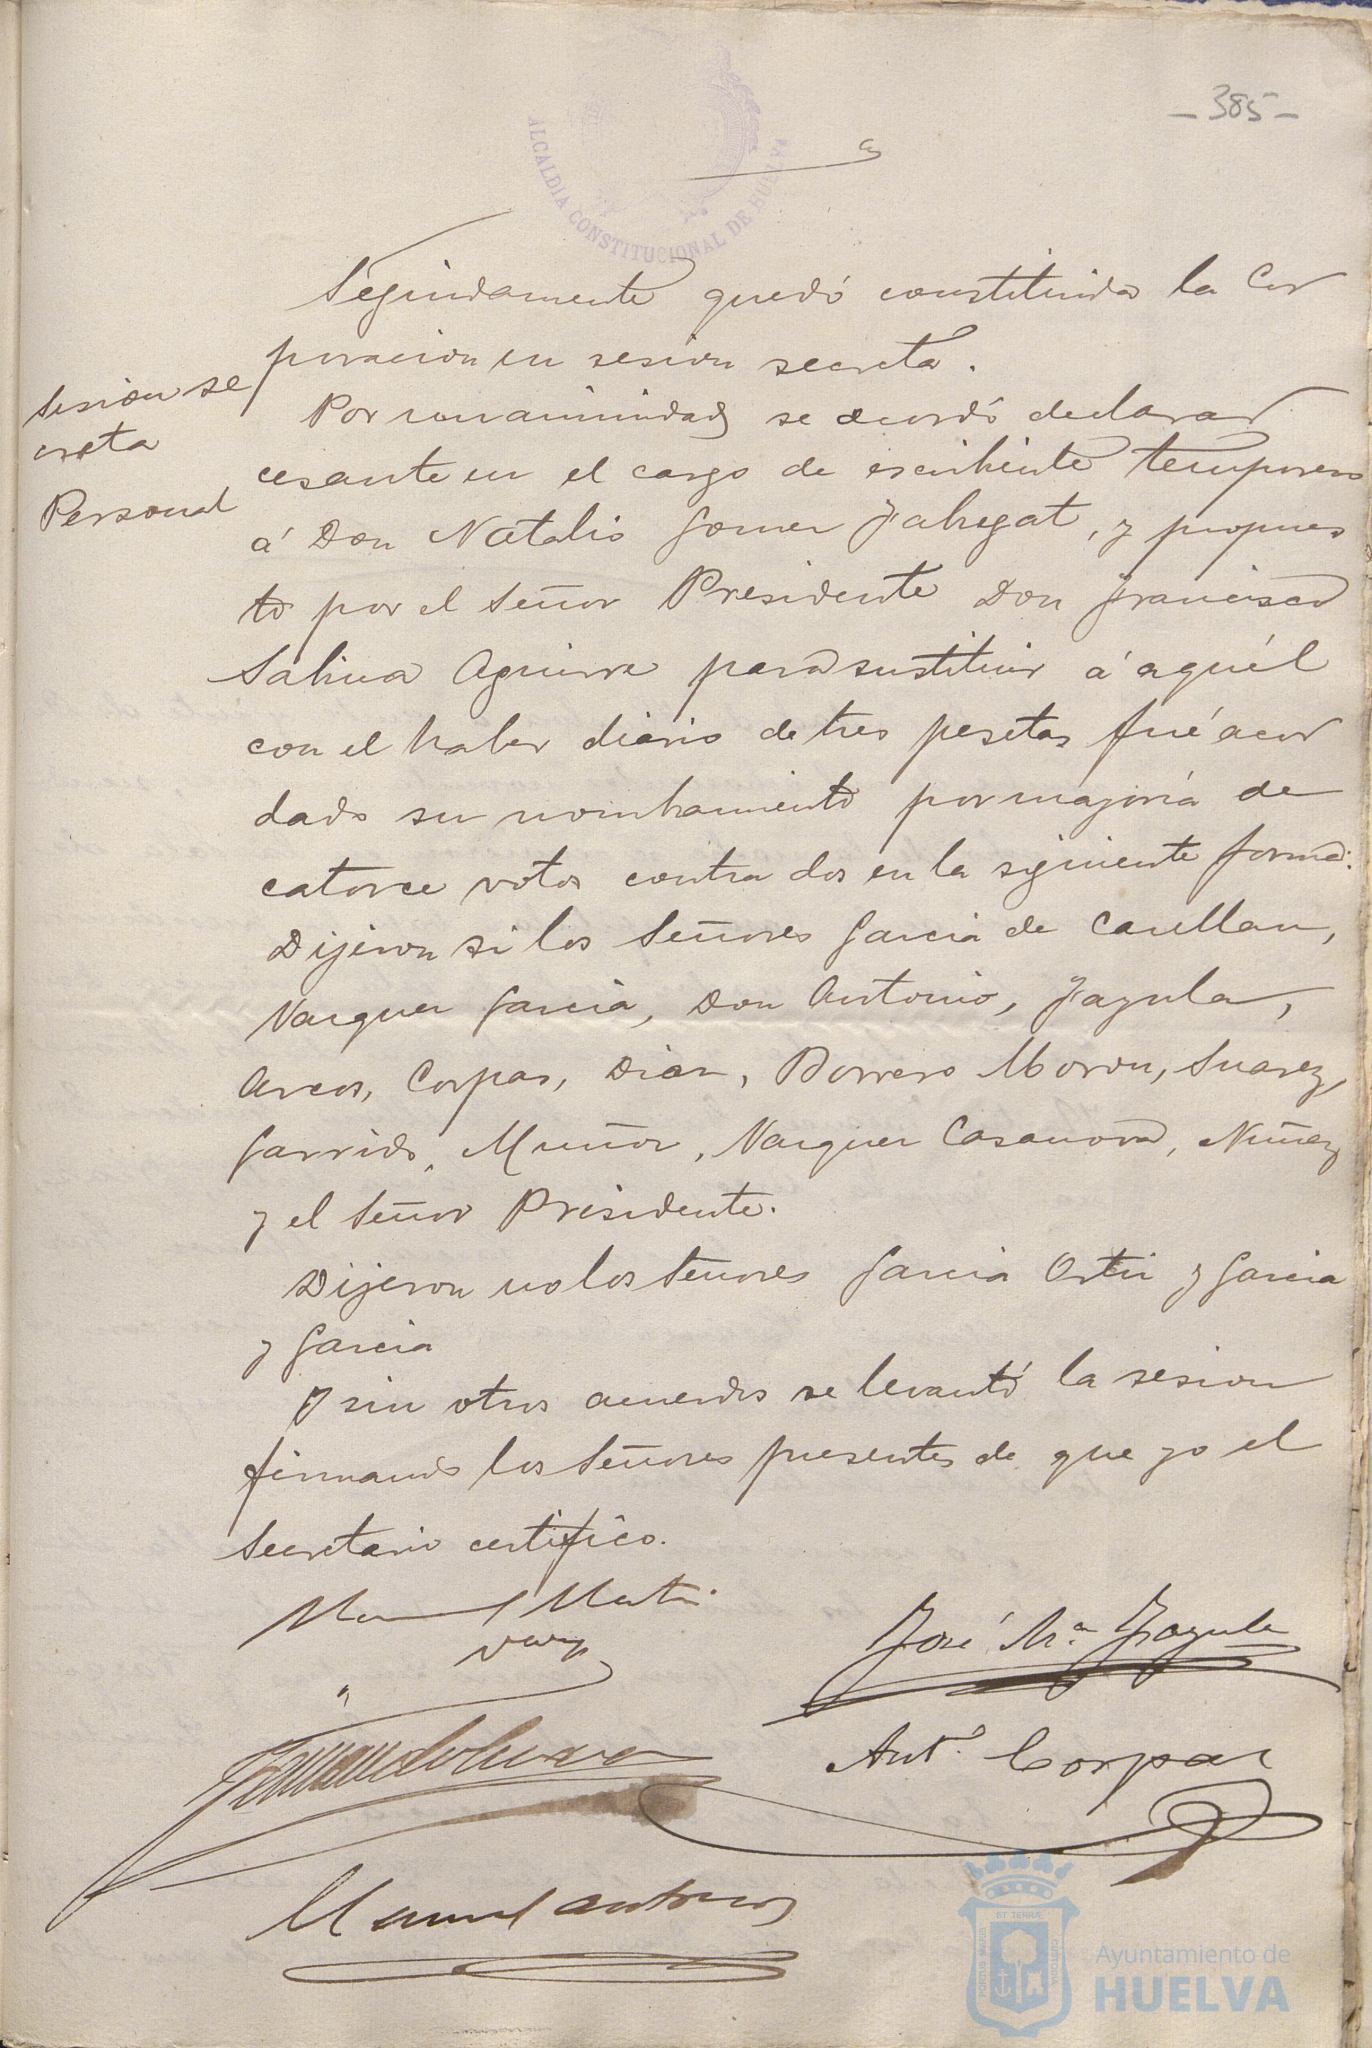 - 385 -
ALCALDIA CONSTITUCIONAL DE HUELVA
Seguidamente quedó constituida la Cor
poracion en sesion secreta.
Sesion se
creta
Personal
Por unanimidad se acordó declarar
cesante en el cargo de escribiente temporero
á Don Natalio Gomez Fabregat, y propues
to por el Señor Presidente Don Francisco
Salina Aguirre para sustituir á aquél
con el haber diario de tres pesetas fué acor
dado su nombramiento por mayoría de
catorce votos contra dos en la siguiente forma:
Dijeron si los Señores Garcia de Casellan,
Vazquez Garcia, Don Antonio, Jazula,
Arcos, Corpas, Diaz, Borrero Moron, Suarez,
Garrido, Muñoz, Vazquez Casanova, Nuñez
y el Señor Presidente.
Dijeron no los Señores Garcia Ortiz y Garcia
y Garcia
Y sin otros acuerdos se levantó la sesion
firmando los Señores presentes de que yo el
Secretario certifico.
José Mª Jazula
Antº Corpas
Manuel
PORTUS MARIS
ET TERRAE
CUSTODIA
Ayuntamiento de
HUELVA